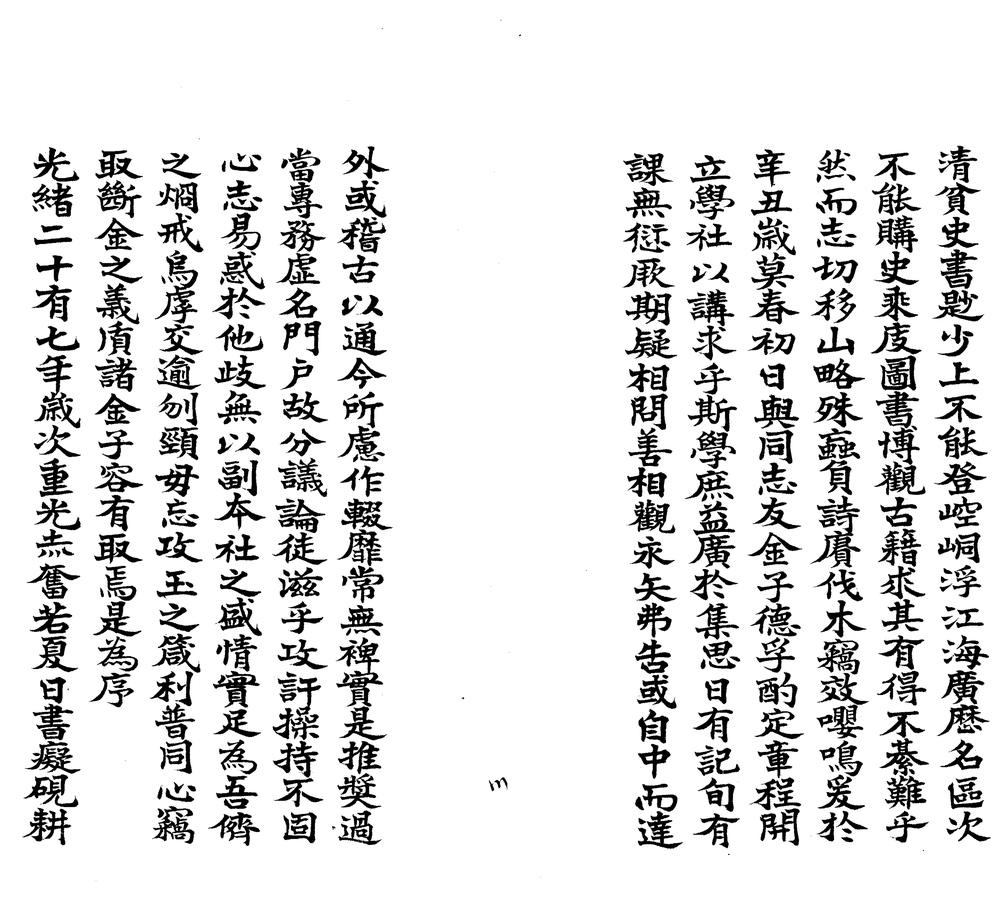 清貧史書尟少上不能登崆峒浮江海廣歷名區次
不能購史乘庋圖書博觀古籍求其有得不綦難乎
然而志切移山略殊蝱負詩賡伐木竊效嚶鳴爰於
辛丑歲莫春初日與同志友金子德孚酌定章程開
立學社以講求乎斯學庶益廣於集思日有記旬有
課無愆厥期疑相問善相觀永矢弗告或自中而達
外或稽古以通今所慮作輟靡常無裨實是推獎過
當專務虛名門戶故分議論徒滋乎攻訐操持不固
心志易惑於他歧無以副本社之盛情實足為吾儕
之烱戒烏虖交逾刎頸毋忘攻玉之箴利普同心竊
取斷金之義質諸金子容有取焉是為序
光緒二十有七年歲次重光赤奮若夏日書癡硯耕